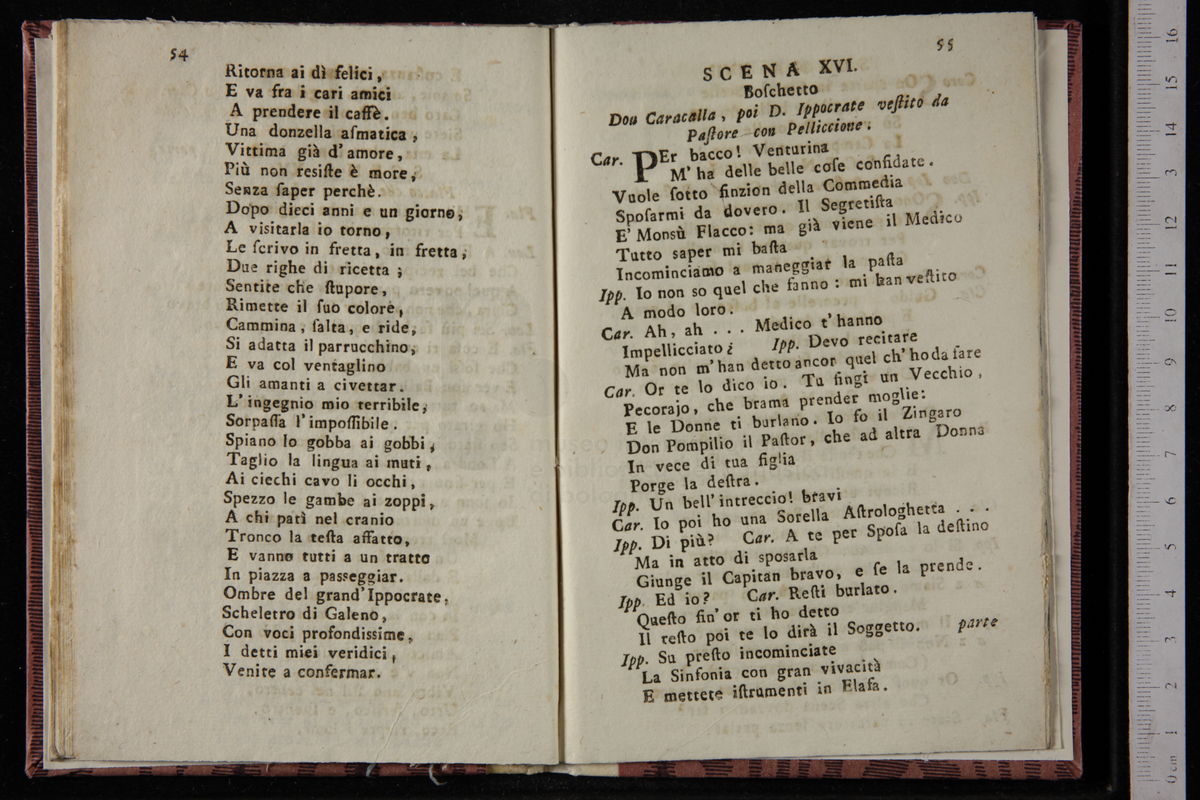 54
Ritorna ai dì felici,
E va fra i cari amici
A prendere il caffè.
Una donzella aſmatica,
Vittima già d'amore,
Più non reſiſte è more,
Senza ſaper perchè.
Dopo dieci anni e un giorno,
A viſitarla io torno,
Le ſcrivo in fretta, in fretta,
Due righe di ricetta;
Sentite che ſtupore,
Rimette il ſuo colore,
Cammina, ſalta, e ride,
Si adatta il parrucchino,
E va col ventaglino
Gli amanti a civettar.
L'ingegnio mio terribile,
Sorpaſſa l'impoſſibile.
Spiano lo gobba ai gobbi,
Taglio la lingua ai muti,
Ai ciechi cavo li occhi,
Spezzo le gambe ai zoppi,
A chi patì nel cranio
Tronco la teſta affatto,
E vanno tutti a un tratto
In piazza a passeggiar.
Ombre del grand'Ippocrate,
Scheletro di Galeno,
Con voci profondissime,
I detti miei veridici,
Venite a confermar.
55
SCENA XVI.
Boſchetto
Don Caracalla, poi D. Ippocrate veſtito da
Paſtore con Pelliccione.
Car. PEr bacco! Venturina
M'ha delle belle coſe confidate.
Vuole ſotto finzion della Commedia
Spoſarmi da dovero. Il Segretiſta
E' Monsù Flacco: ma già viene il Medico
Tutto saper mi baſta
Incominciamo a maneggiar la paſta
Ipp. Io non so quel che fanno: mi han veſtito
A modo loro.
Car. Ah, ah . . . Medico t'hanno
Impellicciato¿ Ipp. Devo recitare
Ma non m'han detto ancor quel ch'ho da fare
Car. Or te lo dico io. Tu fingi un Vecchio,
Pecorajo, che brama prender moglie:
E le Donne ti burlano. Io fo il Zingaro
Don Pompilio il Paſtor, che ad altra Donna
In vece di tua figlia
Porge la deſtra.
Ipp. Un bell'intreccio! bravi
Car. Io poi ho una Sorella Aſtrologhetta . . .
Ipp. Di più? Car. A te per Spoſa la deſtino
Ma in atto di sposarla
Giunge il Capitan bravo, e ſe la prende.
Ipp. Ed io? Car. Reſti burlato.
Queſto fin'or ti ho detto
Il reſto poi te lo dirà il Soggetto. parte
Ipp. Su preſto incominciate
La Sinfonia con gran vivacità
E mettete iſtrumenti in Elafa.